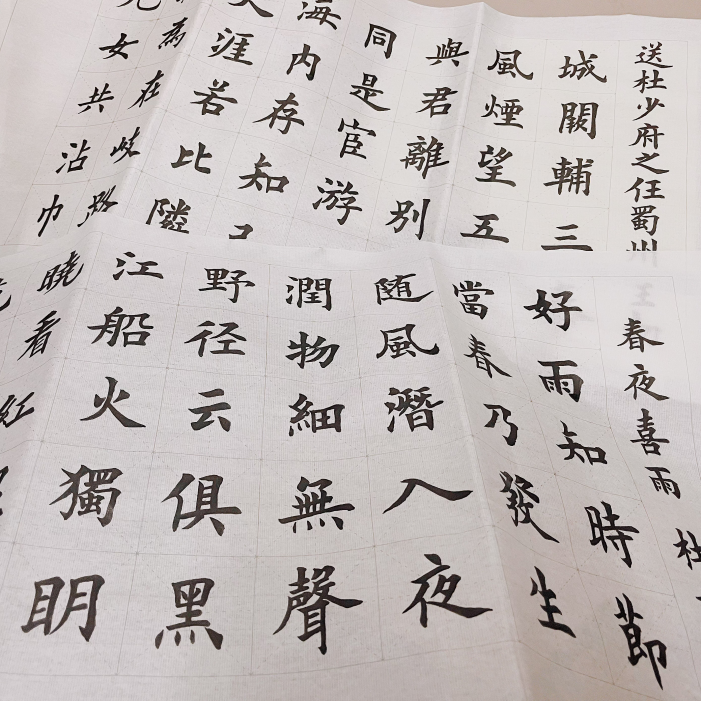 送杜少府之任蜀州
城闕輔三
風煙望五
與君離別
同是宦游
海内存知
天涯若比隣
為在岐路
兒女共沾巾
春夜喜雨 杜
好雨知時節
當春乃發生
随風潛入夜
潤物細無聲
野径云俱黑
江船火獨明
晓看紅